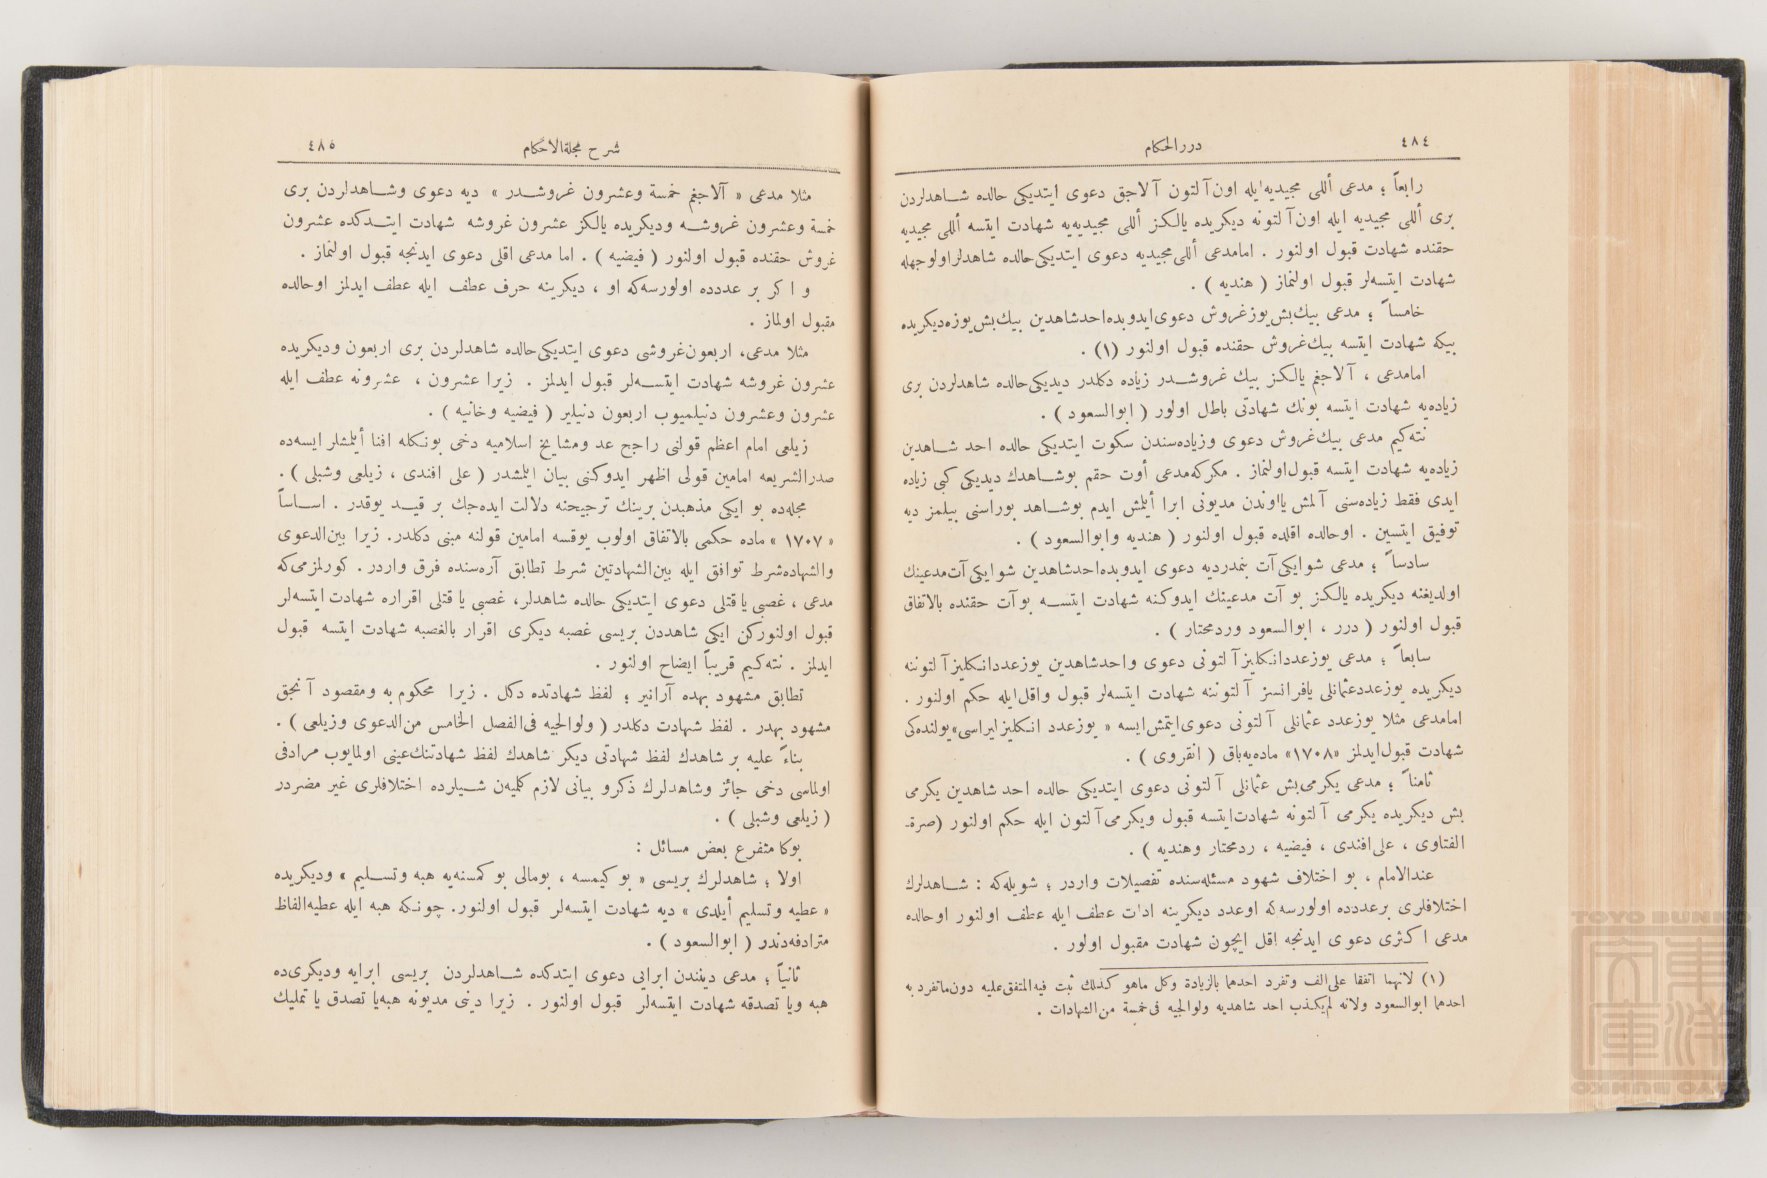 ٤٨٤
دررالحكام
رابعاً ؛ مدعی أللی مجیدیه‌ایله اون‌آلتون آلاجق دعوی ایتدیکی حالده شــاهدلردن
بری أللی مجیدیه ایله اون‌آلتونه دیکریده یالکز أللی مجیدیه‌یه شهادت ایتسه أللی مجیدیه
حقنده شهادت قبول اولنور . امامدعی أللی‌مجیدیه دعوی ایتدیکی‌حالده شاهدلراولوجهله
شهادت ایتسه‌لر قبول اولنماز ( هندیه ) .
خامساً ؛ مدعی بیك‌بش‌یوزغروش دعوی‌ایدوبده‌احدشاهدین بیك‌بش‌یوزه‌دیکریده
بیکه شهادت ایتسه بیك‌غروش حقنده قبول اولنور (١) .
امامدعی ، آلاجغم یالکز بیك غروشــدر زیاده دکلدر دیدیکی‌حالده شاهدلردن بری
زیاده‌یه شهادت ایتسه بونك شهادتی باطل اولور ( ابوالسعود ) .
نته‌کیم مدعی بیك‌غروش دعوی وزیاده‌سندن سکوت ایتدیکی حالده احد شــاهدین
زیاده‌یه شهادت ایتسه قبول‌اولنماز . مکرکه‌مدعی أوت حقم بوشــاهدك دیدیکی کبی زیاده
ایدی فقط زیاده‌سنی آلمش یااوندن مدیونی ابرا أیلمش ایدم بوشــاهد بوراسنی بیلمز دیه
توفیق ایتسین . اوحالده اقلده قبول اولنور ( هندیه وابوالسعود ) .
سادساً ؛ مدعی شوایکی‌آت بنمدردیه دعوی ایدوبده‌احدشاهدین شوایکی‌آت‌مدعینك
اولدیغنه دیکریده یالکز بو آت مدعینك ایدوکنه شهادت ایتســه بوآت حقنده بالاتفاق
قبول اولنور ( درر ، ابوالسعود وردمحتار ) .
سابعاً ؛ مدعی یوزعددانکلیزآلتونی دعوی واحدشاهدین یوزعددانکلیزآلتوننه
دیکریده یوزعددعثمانلی یافرانسز آلتوننه شهادت ایتسه‌لر قبول واقل‌ایله حکم اولنور .
امامدعی مثلا یوزعدد عثمانلی آلتونی دعوی‌ایتمش‌ایسه « یوزعدد انکلیزلیراسی»یولنده‌کی
شهادت قبول‌ایدلمز «١٧٠٨» ماده‌یه‌باق ( انقروی ) .
ثامناً ؛ مدعی یکرمی‌بش عثمانلی آلتونی دعوی ایتدیکی حالده احد شاهدین یکرمی
بش دیکریده یکرمی آلتونه شهادت‌ایتسه قبول ویکرمی‌آلتون ایله حکم اولنور (صرة‌ـ
الفتاوی ، علی‌افندی ، فیضیه ، ردمحتار وهندیه ) .
عندالامام ، بو اختلاف شهود مسئله‌سنده تفصیلات واردر ؛ شویله‌که : شــاهدلرك
اختلافلری برعددده اولورسه‌که اوعدد دیکرینه ادات عطف ایله عطف اولنور اوحالده
مدعی اکثری دعوی ایدنجه اقل ایچون شهادت مقبول اولور .
(١) لانهما اتفقا على الف وتفرد احدهما بالزيادة وكل ماهو كذلك ثبت فيه المتفق‌عليه دون‌ماتفرد به
احدهما ابوالسعود ولانه لم‌یکذب احد شاهدیه ولوالجیه فی خمسة من‌الشهادات .
شرح مجلةالاحكام
٤٨٥
مثلا مدعی « آلاجغم خمسة وعشرون غروشــدر » دیه دعوی وشــاهدلردن بری
خمسة وعشرون غروشــه ودیکریده یالکز عشرون غروشه شهادت ایتــدکده عشرون
غروش حقنده قبول اولنور ( فیضیه ) . اما مدعی اقلی دعوی ایدنجه قبول اولنماز .
و اکر بر عددده اولورسه‌که او ، دیکرینه حرف عطف ایله عطف ایدلمز اوحالده
مقبول اولماز .
مثلا مدعی، اربعون‌غروشی دعوی ایتدیکی‌حالده شاهدلردن بری اربعون ودیکریده
عشرون غروشه شهادت ایتســه‌لر قبول ایدلمز . زیرا عشرون ، عشرونه عطف ایله
عشرون وعشرون دنیلمیوب اربعون دنیلیر ( فیضیه وخانیه ) .
زیلعی امام اعظم قولنی راجح عد ومشایخ اسلامیه دخی بونکله افتا أیلمشلر ایسه‌ده
صدرالشریعه امامین قولی اظهر ایدوکنی بیان ایلمشدر ( علی افندی ، زیلعی وشبلی ) .
مجله‌ده بو ایکی مذهبدن برینك ترجیحنه دلالت ایده‌جك بر قیــد یوقدر . اســاساً
«١٧٠٧» ماده حکمی بالاتفاق اولوب یوقسه امامین قولنه مبنی دکلدر. زیرا بین‌الدعوی
والشهاده‌شرط توافق ایله بین‌الشهادتین شرط تطابق آره‌سنده فرق واردر . کورلمزمی‌که
مدعی ، غصبی یا قتلی دعوی ایتدیکی حالده شاهدلر، غصبی یا قتلی اقراره شهادت ایتسه‌لر
قبول اولنورکن ایکی شاهددن بریسی غصبه دیکری اقرار بالغصبه شهادت ایتسه قبول
ایدلمز . نته‌کیم قریباً ایضاح اولنور .
تطابق مشهود بهده آرانیر ؛ لفظ شهادتده دکل . زیرا محکوم به ومقصود آنجق
مشهود بهدر . لفظ شهادت دکلدر ( ولوالجیه فی‌الفصل الخامس من‌الدعوی وزیلعی ) .
بناءً علیه بر شاهدك لفظ شهادتی دیکر شاهدك لفظ شهادتنك‌عینی اولمایوب مرادفی
اولماسی دخی جائز وشاهدلرك ذکرو بیانی لازم کلمیه‌ن شــیلرده اختلافلری غیر مضردر
( زیلعی وشبلی ) .
بوکا متفرع بعض مسائل :
اولا ؛ شاهدلرك بریسی « بو کیمسه ، بومالی بو کمسنه‌یه هبه وتســلیم » ودیکریده
« عطیه وتسلیم أیلدی » دیه شهادت ایتسه‌لر قبول اولنور. چونکه هبه ایله عطیه‌الفاظ
مترادفه‌دندر ( ابوالسعود ) .
ثانیاً ؛ مدعی دیننندن ابرایی دعوی ایتدکده شــاهدلردن بریسی ابرایه ودیکری‌ده
هبه ویا تصدقه شهادت ایتسه‌لر قبول اولنور . زیرا دینی مدیونه هبه‌یا تصدق یا تملیك